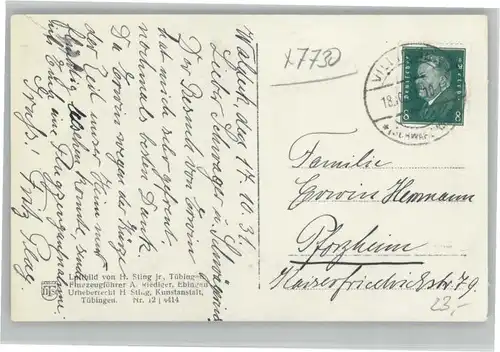 Waldeck, den 17.10.31.
Lieber Schwager u. Schwägerin
Der Besuch von Erwin
hat mich sehr gefreut.
nochmals besten Dank.
Da Erwin wegen der Kürze
der Zeit unser Heim nicht
ständig konnte, sende
ich Euch eine Flugzeugaufnahme.
Gruß! Fritz
Luftbild von H. Sting Jr., Tübing
Flugzeugführer A. Riedler, Ebingen
Urheberrecht H Sting, Kunstanstalt,
Tübingen. Nr. 12 | 4414
x7730
Deutsches Reich
8 8
Familie
Erwin Hermann
Pforzheim
Kaiserfriedrichstr. 79
23,-